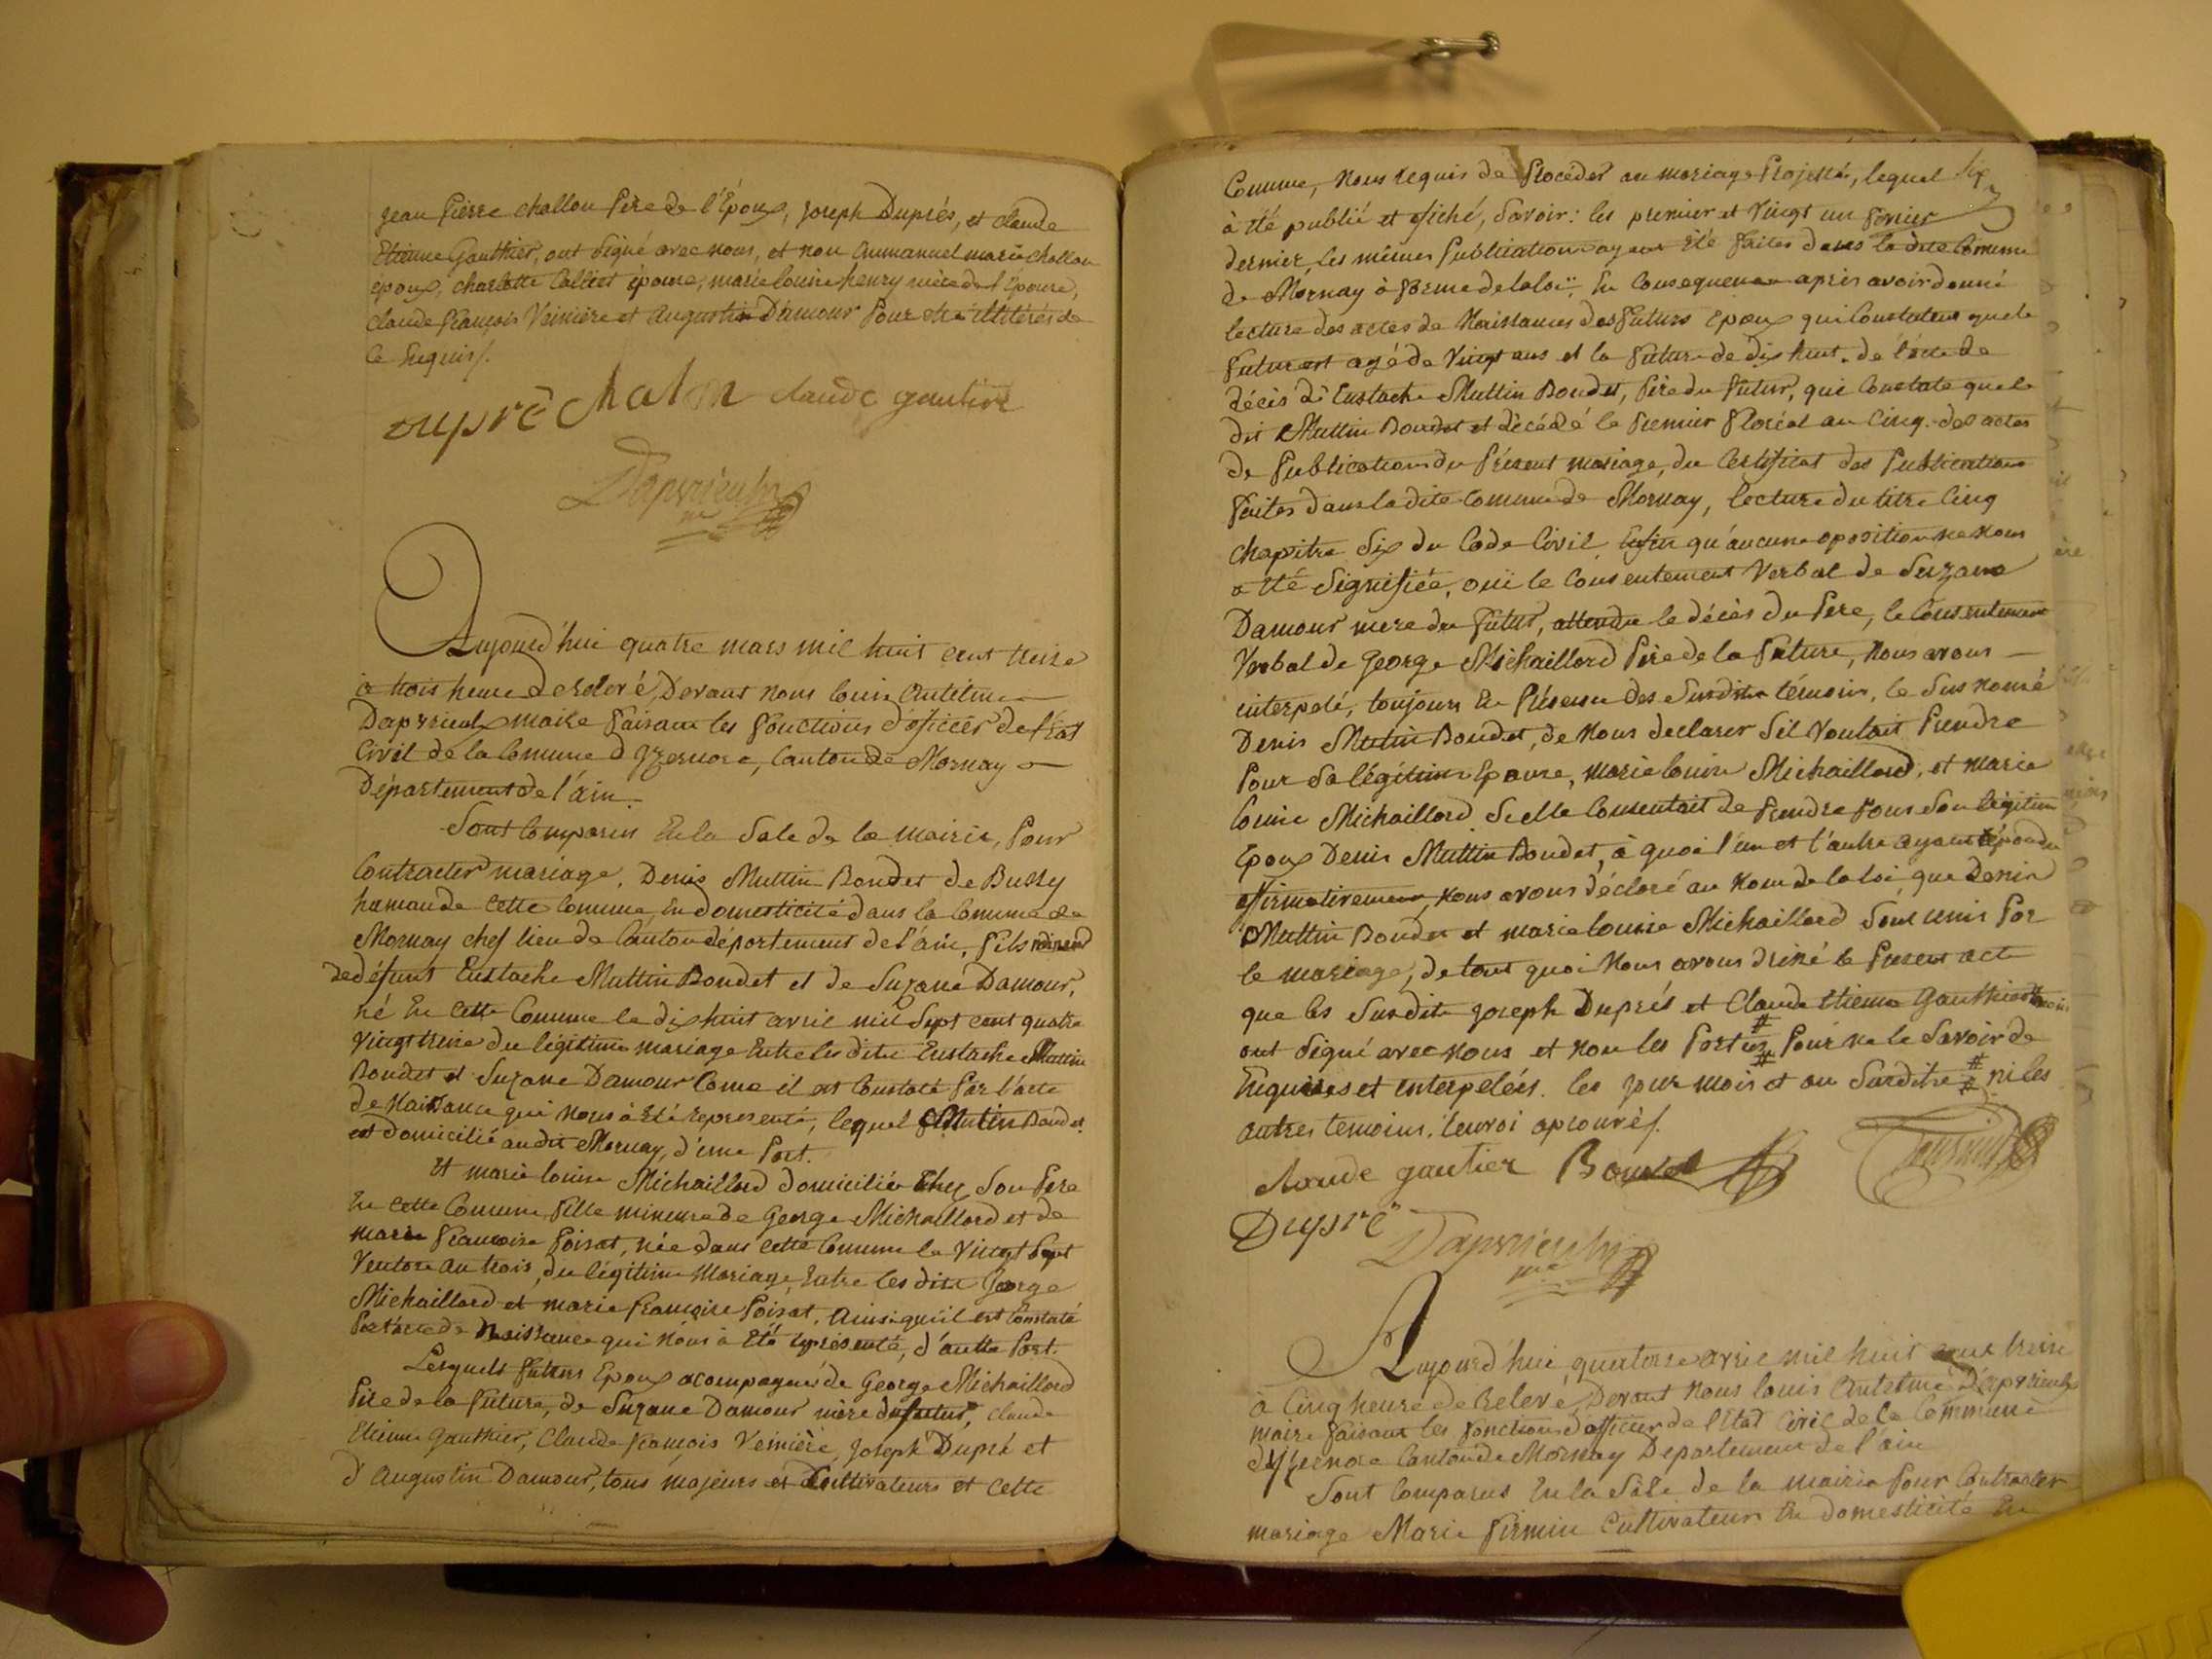 Jean Pierre Challon Père de l'Époux, Joseph Duprés, et Claude
Etienne Gauthier, ont signé avec nous, et non Anmanuel marie Challon
epoux, Charlotte Colliet épouse, marie Louise henry mère de l'Épouse,
Claude François Veinière et Augustin Damour Pour être illitérés de
ce Enquis/.
Dupré Chalon claude gautier
Daprvieulx
me
Aujourd'hui quatre mars mil huit cent treize
à trois heure de relevé, Devant nous louis Antelme
Daprvieulx maire Faisant les Fonctions d'officier de l'État
Civil de la Comune d'Yzernore, Canton de Mornay
Département de l'ain.
Sont Comparus En la Sale de la mairie, Pour
Contracter mariage, Denis Muttin Bondet de Bussy
hameau de cette Comune, en domesticité dans la Comune de
Mornay chef lieu de Canton département de l'ain, Fils mineur
de défunt Eustache Muttin Bondet et de Suzane Damour,
né En Cette Comune le dix huit avril mil Sept cent quatre
Vingt treize du légitime mariage Entre les dits Eustache Muttin
Bondet et Suzane Damour Come il est Constaté Par l'acte
de Naissance qui nous à été representé, lequel Muttin Bondet
est domicilié au dit Mornay, d'une Part.
Et marie louise Michaillard domiciliée Chez Son Pere
En Cette Comune Fille mineure de George Michaillard et de
marie Françoise Poisat, née dans cette Comune le Vingt Sept
Ventose an trois, du légitime Mariage, Entre les dits George
Michaillard et marie Françoise Poisat, ainsi qu'il est Constaté
Par l'acte de Naissance qui nous à été représenté, d'autre Part.
Lesquels Futurs Epoux acompagnés de George Michaillard
Père de la Future, de Suzane Damour mère du futur, Claude
Etienne Gauthier, Claude François Veinière, Joseph Dupré et
d'Augustin Damour, tous majeurs et Cultivateurs et Cette
Comune, Nous requis de Procéder au mariage Projetté, lequel
à été publié et afiché, Savoir: les premier et Vingt un Fevrier
dernier, les mêmes Publications ayant Été Faites dans la dite Comune
de Mornay à Forme de la loi, En Consequence après avoir donné
lecture des actes de Naissances des Futurs Epoux qui Constatent que le
Futur est agé de Vingt ans et la Future de dix huit. de l'acte de
Décès d'Eustache Muttin Bondet, Père du Futur, qui Constate que le
dit Muttin Bondet et décédé le Premier Floréal an Cinq. des actes
de Publication du Présent mariage, du Certificat des Publications
Faites dans la dite Comune de Mornay, lecture du titre Cinq
Chapitre Six du Code Civil Enfin qu'aucune oposition ne nous
a été Signifiée, oui le Consentement Verbal de Suzane
Damour mere du Futur, attendu le décès du Pere, le Consentement
Verbal de George Michaillard Père de la Future, Nous avons
interpelé, toujours En Présence des Susdits témoins, le Sus nomé
Denis Muttin Bondet, de nous declarer S'il Voulait Prendre
Pour Sa légitime Epouse, Marie louise Michaillard, et marie
louise Michaillard Si elle Consentait de Prendre Pour Son légitime
Epoux Denis Muttin Bondet, à quoi l'un et l'autre ayant répondu
affirmativement, nous avons déclaré au Nom de la loi, que Denis
Muttin Bondet et marie louise Michaillard Sont unis Par
le mariage, de tout quoi Nous avons dressé le Présent acte
que les Susdits Joseph Duprés et Claude Etienne Gauthier témoins
ont Signé avec nous et non les Parties # Pour ne le Savoir de
Enquises et interpelées. les jour mois et an Susdits # # ni les
autres temoins, renvoi aprouvés/.
claude gautier Bondet
Dupré Daprvieulx
me
Aujourd'hui, quatorze avril mil huit cent treize
à Cinq heure de Relevé, Devant Nous louis Antelme Daprvieulx
maire Faisant les Fonctions d'officier de l'État Civil de la Commune
d'Yzernore Canton de Mornay Département de l'ain
Sont Comparus En la Sale de la mairie Pour Contracter
mariage Marie Firmin Cultivateur En domesticité En